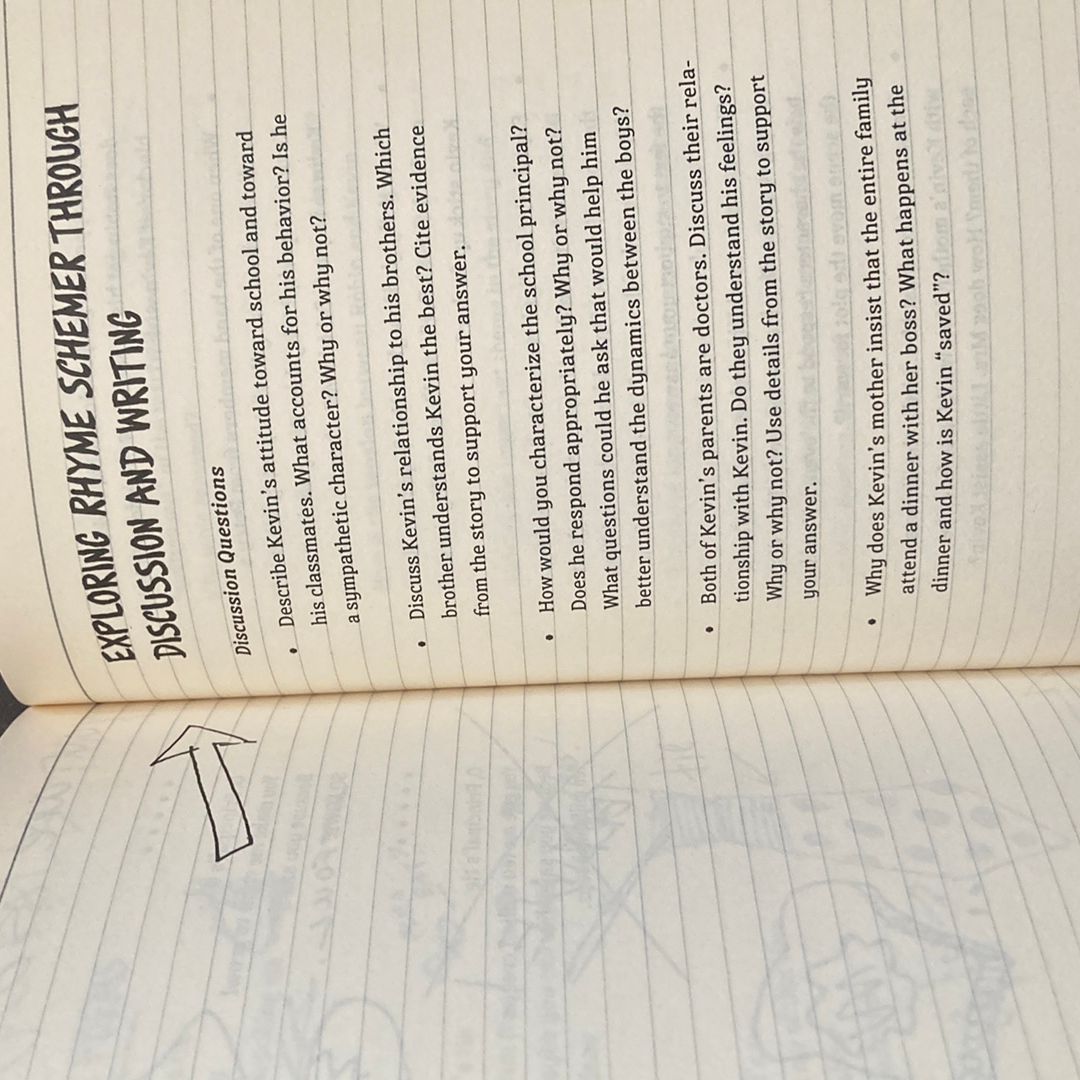 EXPLORING RHYME SCHEMER THROUGH
DISCUSSION AND WRITING
Discussion Questions
• Describe Kevin's attitude toward school and toward
his classmates. What accounts for his behavior? Is he
a sympathetic character? Why or why not?
• Discuss Kevin's relationship to his brothers. Which
brother understands Kevin the best? Cite evidence
from the story to support your answer.
• How would you characterize the school principal?
Does he respond appropriately? Why or why not?
What questions could he ask that would help him
better understand the dynamics between the boys?
• Both of Kevin's parents are doctors. Discuss their rela-
tionship with Kevin. Do they understand his feelings?
Why or why not? Use details from the story to support
your answer.
• Why does Kevin's mother insist that the entire family
attend a dinner with her boss? What happens at the
dinner and how is Kevin “saved”?